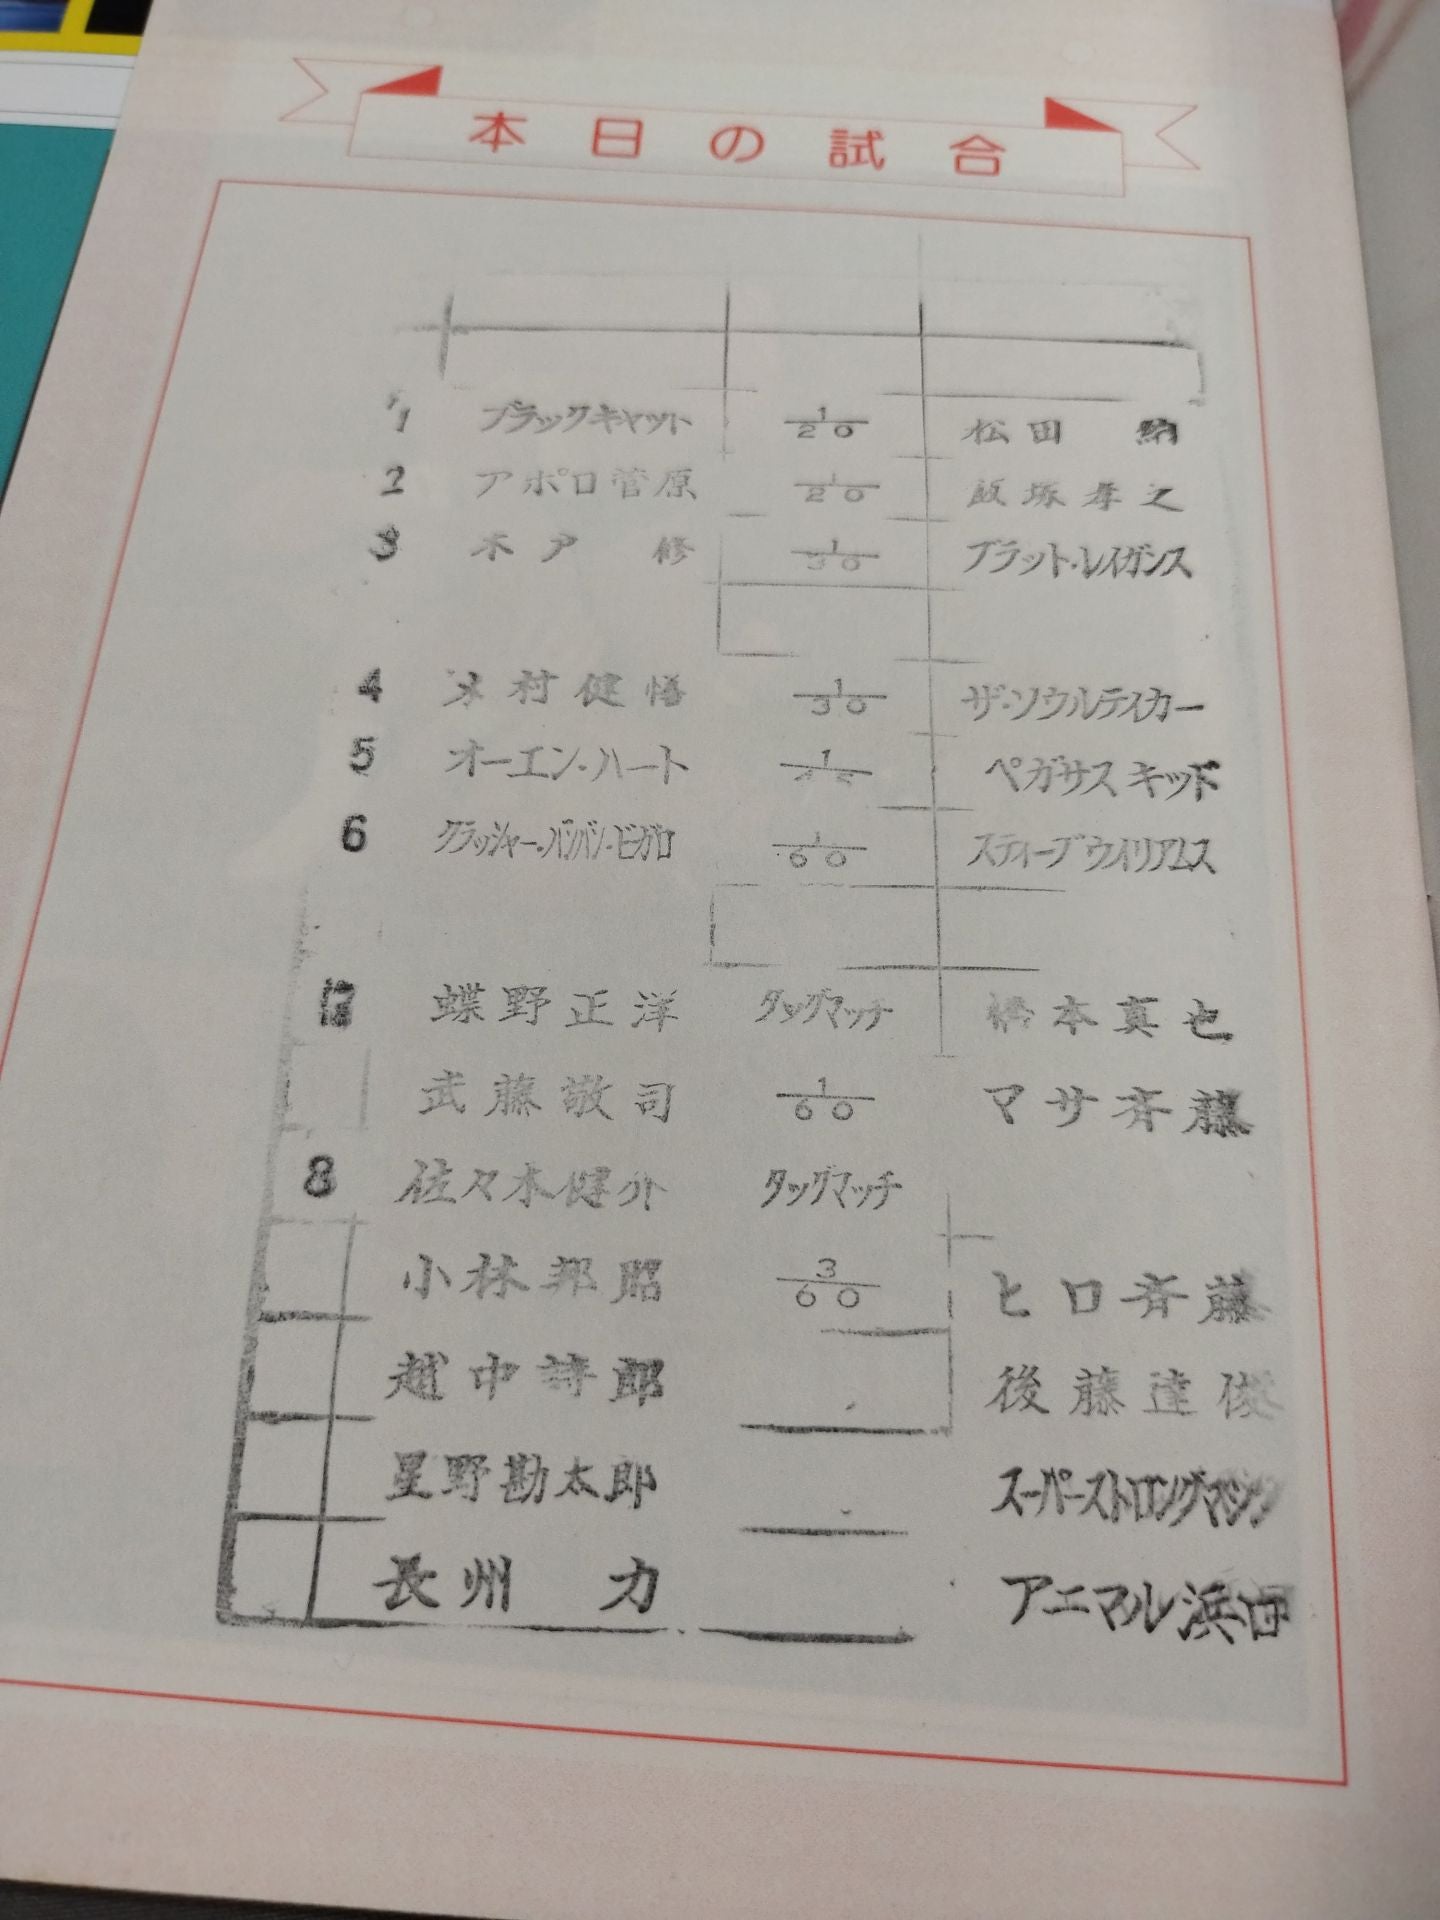 本日の試合
1 ブラックキャット 1/20 松田 納
2 アポロ菅原 1/20 飯塚孝之
3 木戸 修 1/30 ブラット・レイガンス
4 木村健悟 1/30 ザ・ソウルテイカー
5 オーエン・ハート 1/45 ペガサスキッド
6 クラッシャー・バンバン・ビガロ 1/60 スティーブウイリアムス
蝶野正洋 タッグマッチ 橋本真也
武藤敬司 1/60 マサ斉藤
8 佐々木健介 タッグマッチ
小林邦昭 3/60 ヒロ斉藤
越中詩郎 後藤達俊
星野勘太郎 スーパーストロングマシン
長州 力 アニマル浜口